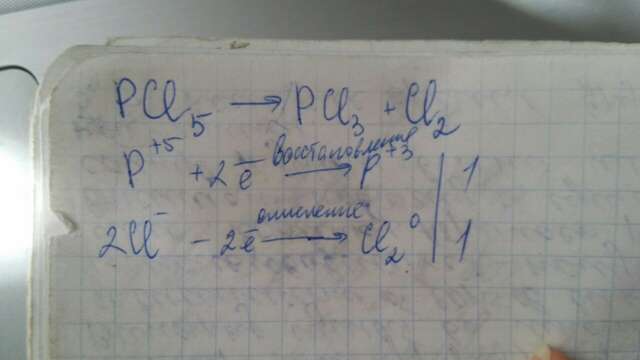 PCl₅ → PCl₃ + Cl₂
P⁺⁵ + 2ē восстановление → P⁺³ | 1
2Cl⁻ - 2ē окисление → Cl₂⁰ | 1